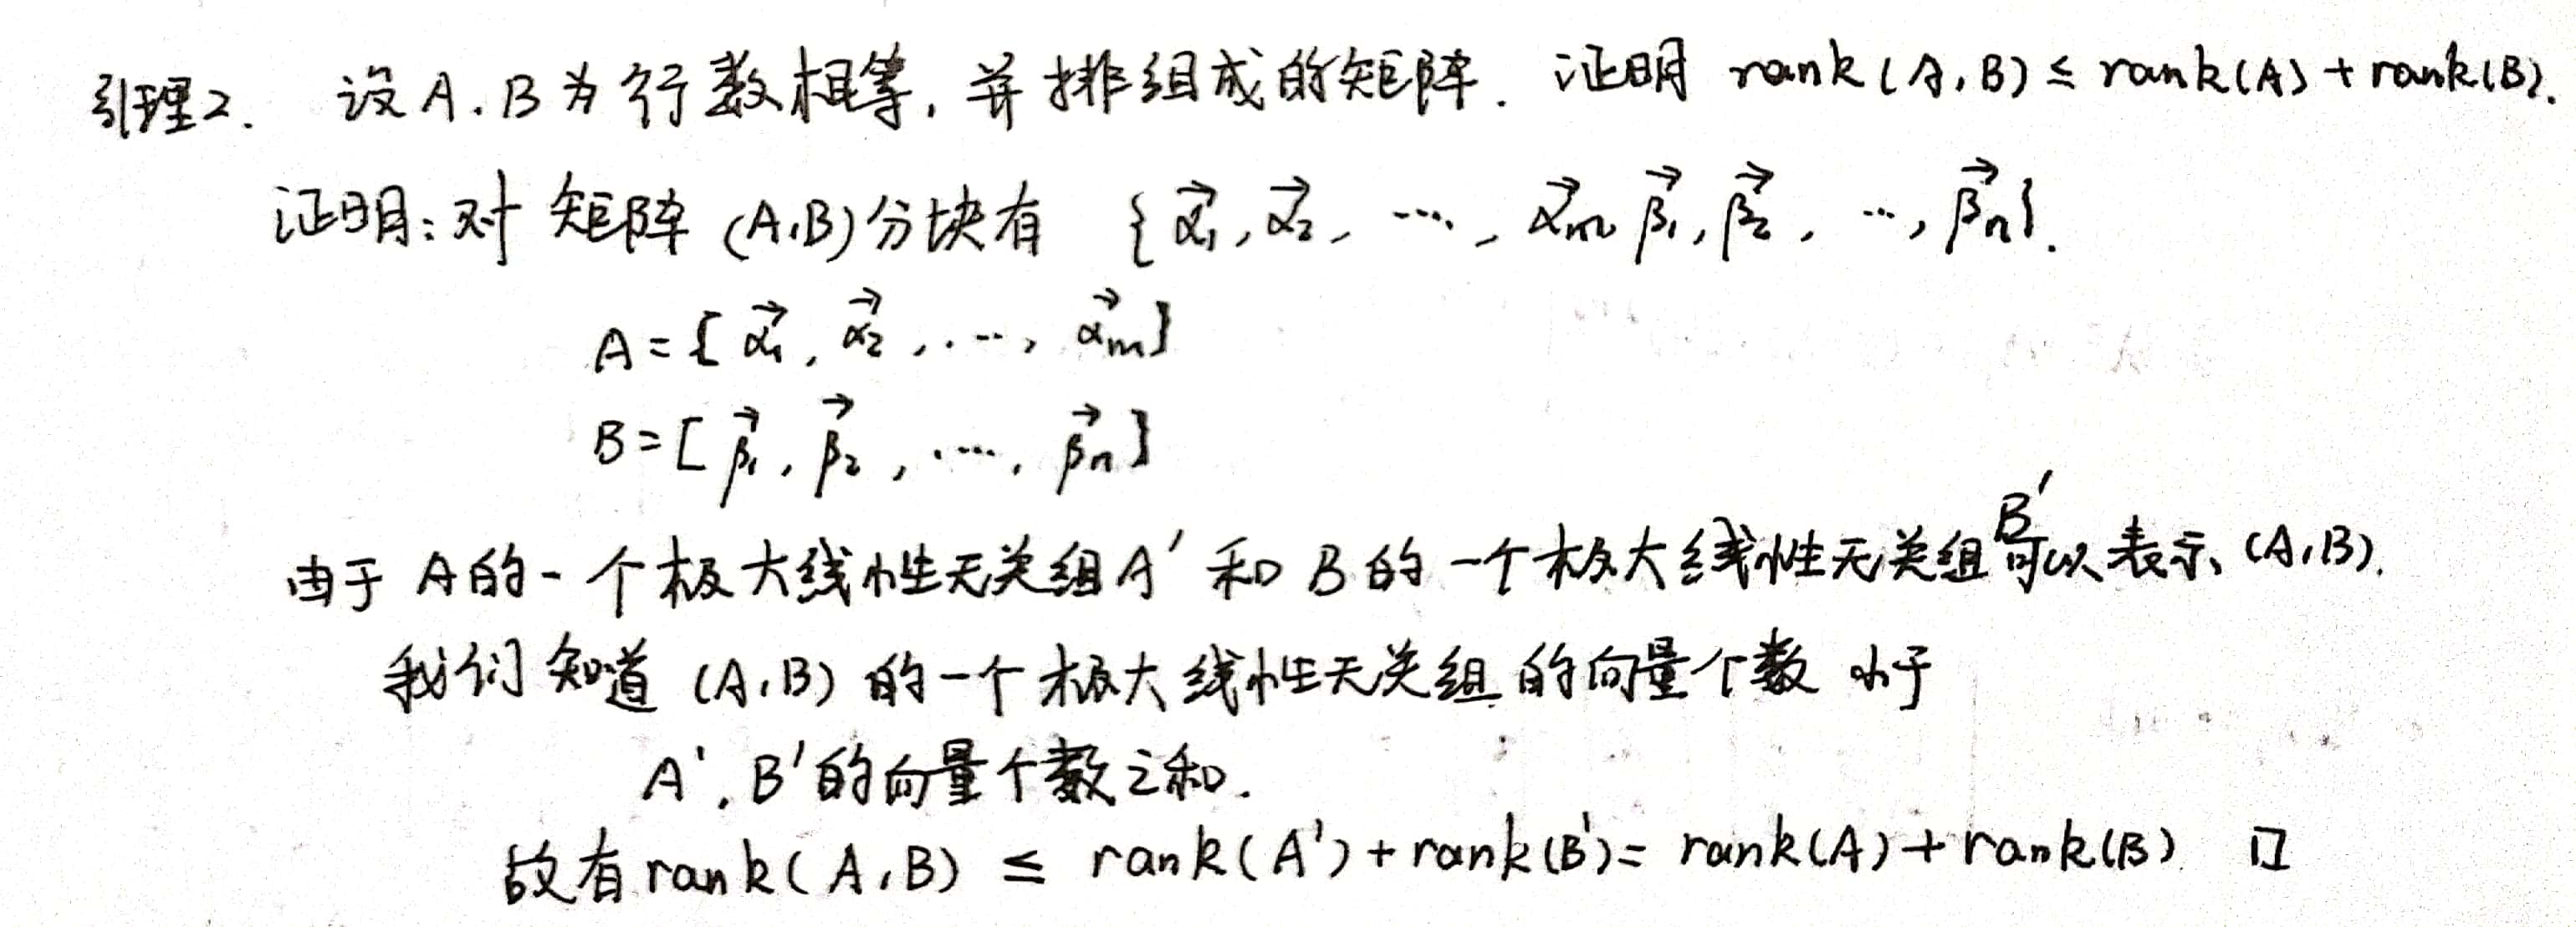 引理2. 设A.B为行数相等,并排组成的矩阵. 证明 rank(A,B)≤rank(A)+rank(B).
证明:对矩阵(A,B)分块有 {α⃗₁,α⃗₂, …, α⃗ₘ β⃗₁,β⃗₂, …,β⃗ₙ}.
A=[α⃗₁,α⃗₂,…,α⃗ₘ]
B=[β⃗₁,β⃗₂,…,β⃗ₙ]
由于A的一个极大线性无关组A'和B的一个极大线性无关组B'可以表示(A,B).
我们知道(A,B)的一个极大线性无关组的向量个数小于
A',B'的向量个数之和.
故有rank(A,B)≤rank(A')+rank(B')=rank(A)+rank(B) □